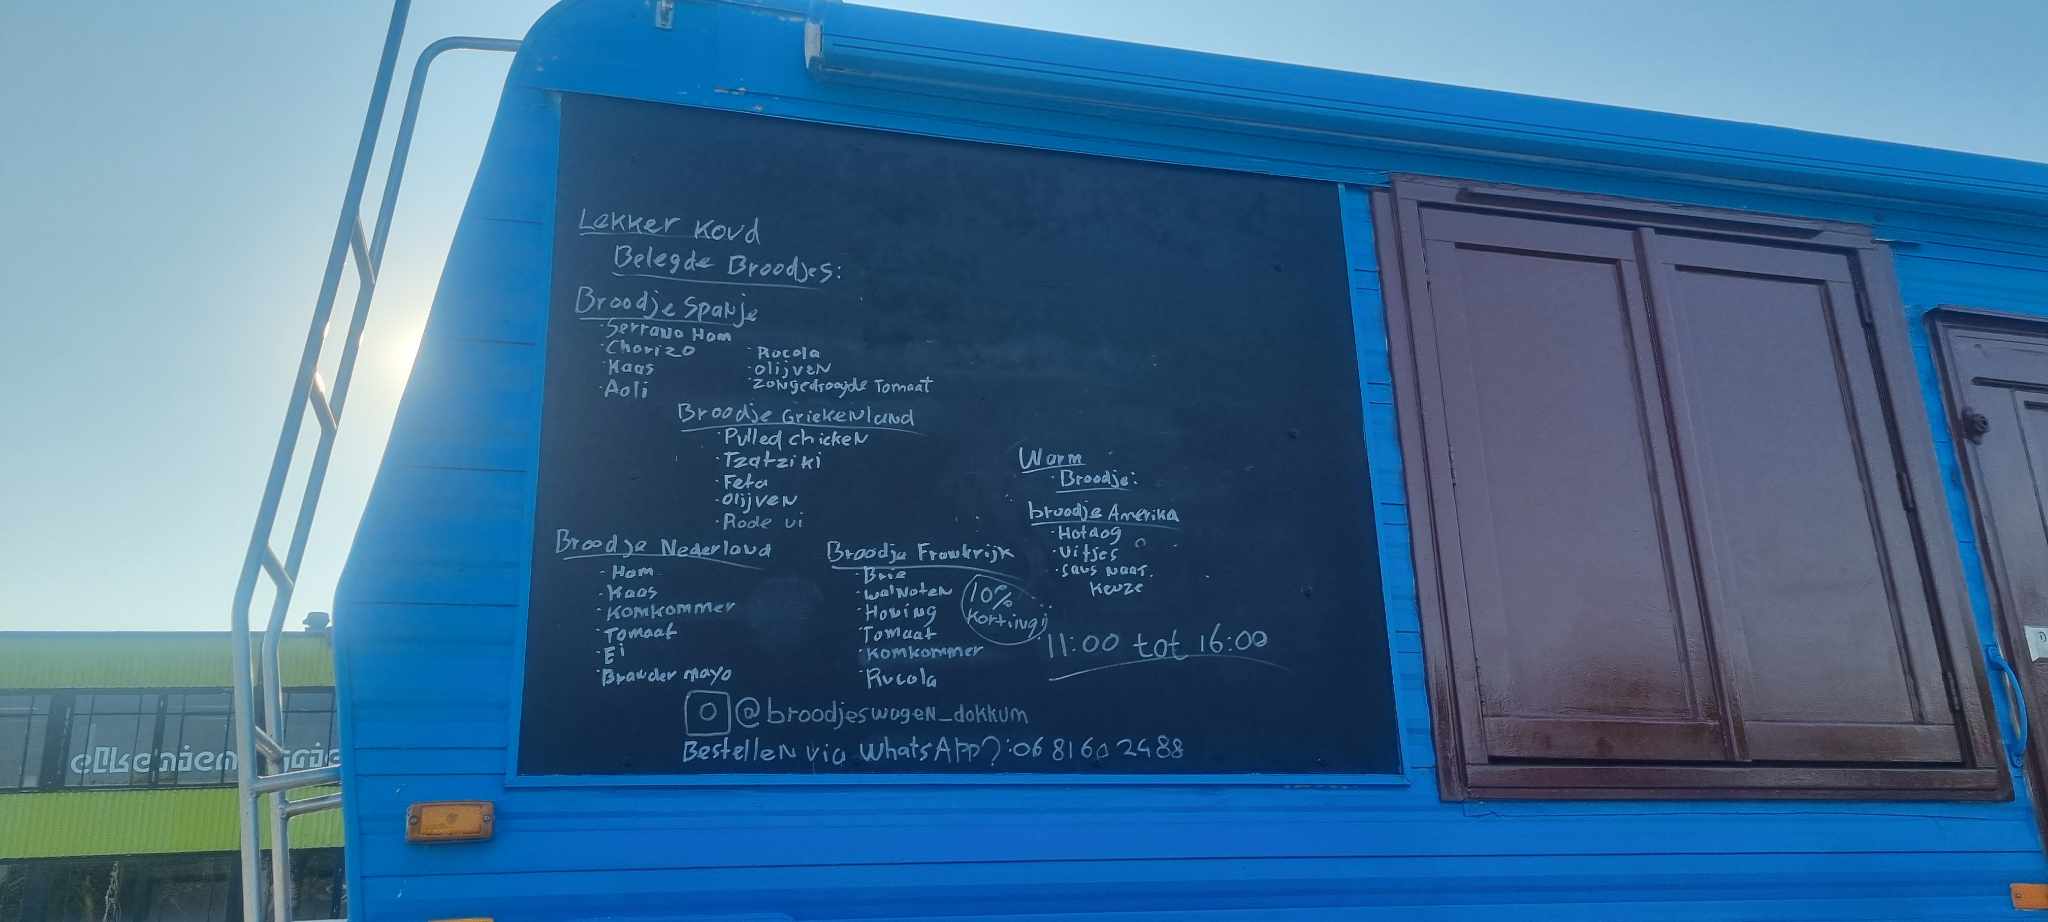 Lekker Koud
Belegde Broodjes:
Broodje Spanje
·Serrano Ham
·Chorizo
·Kaas
·Aoli
·Rucola
·Olijven
·Zongedroogde Tomaat
Broodje Griekenland
·Pulled chicken
·Tzatziki
·Feta
·Olijven
·Rode ui
Broodje Nederland
·Ham
·Kaas
·Komkommer
·Tomaat
·Ei
·Brander mayo
Broodje Frankrijk
·Brie
·Walnoten
·Honing
·Tomaat
·Komkommer
·Rucola
10%
Korting!
Warm
·Broodje:
broodje Amerika
·Hotdog
·Uitjes
·Saus naar
Keuze
11:00 tot 16:00
@broodjeswagen_dokkum
Bestellen via WhatsApp?:06 81 60 2488